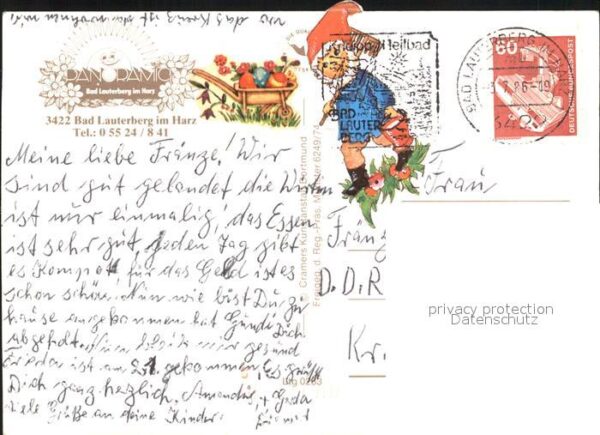 wo das Kreuz ist wohnen wir
PANORAMIC
Bad Lauterberg im Harz
3422 Bad Lauterberg im Harz
Tel.: 0 55 24 / 8 41
Meine liebe Fränze! Wir
sind gut gelandet die Wirtin
ist nur einmalig, das Essen
ist sehr gut jeden Tag gibt
es Kompot, für das Geld ist es
schon schön. Nun wie bist Du zu
hause angekommen hat Gündi Dich
abgeholt. Nun bleib mir gesund
Frieda ist am 21. gekommen Es grüßt
Dich ganz herzlich Amanda, + Gerda
viele Grüße an deine Kinder
Cramers Kunstanstalt Dortmund
Freigeg. d. Reg.-Präs. Münster 6249/74
Blg 0263
Heilbad
BAD
LAUTER
BERG
BAD LAUTERBERG
86-19
3422
60
DEUTSCHE BUNDESPOST
Frau
Frän
D.D.R
Kr
privacy protection
Datenschutz